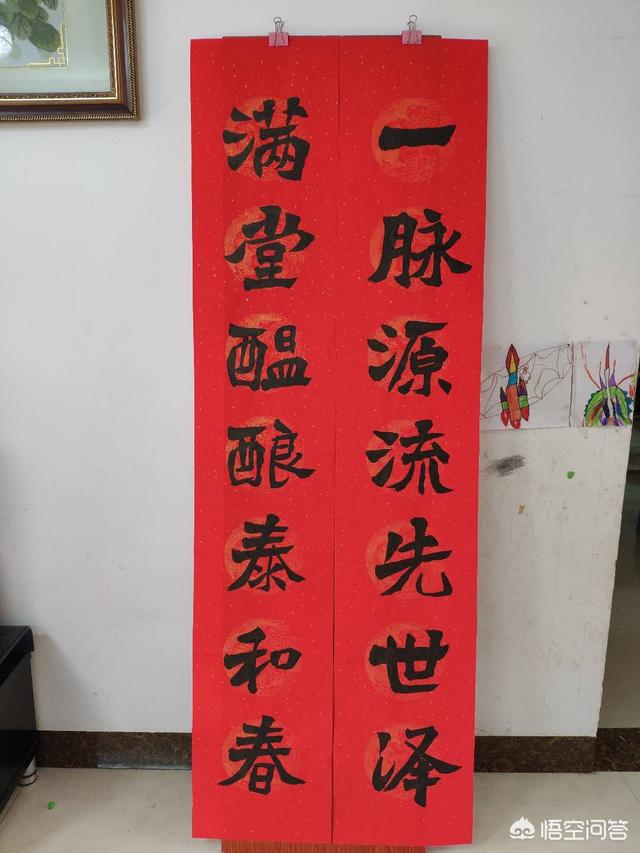 一脉源流先世泽
满堂醖酿泰和春
悟空问答